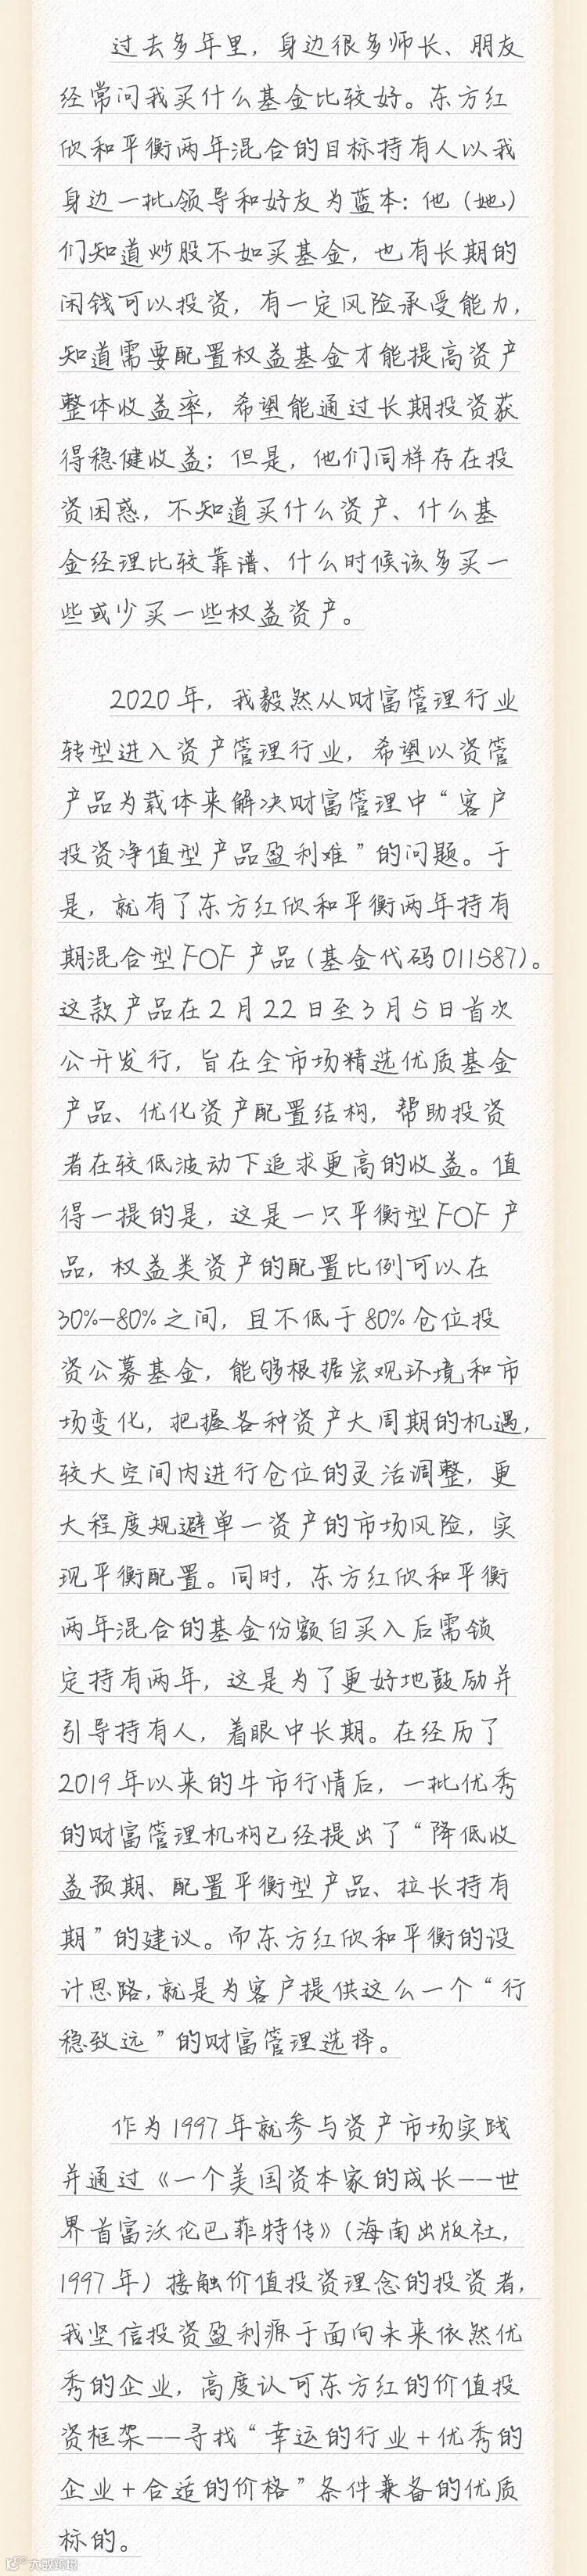 过去多年里，身边很多师长、朋友
经常问我买什么基金比较好。东方红
欣和平衡两年混合的目标持有人以我
身边一批领导和好友为蓝本：他（她）
们知道炒股不如买基金，也有长期的
闲钱可以投资，有一定风险承受能力，
知道需要配置权益基金才能提高资产
整体收益率，希望能通过长期投资获
得稳健收益；但是，他们同样存在投
资困惑，不知道买什么资产、什么基
金经理比较靠谱、什么时候该多买一
些或少买一些权益资产。
2020年，我毅然从财富管理行业
转型进入资产管理行业，希望以资管
产品为载体来解决财富管理中“客户
投资净值型产品盈利难”的问题。于
是，就有了东方红欣和平衡两年持有
期混合型FOF产品（基金代码011587）。
这款产品在2月22日至3月5日首次
公开发行，旨在全市场精选优质基金
产品、优化资产配置结构，帮助投资
者在较低波动下追求更高的收益。值
得一提的是，这是一只平衡型FOF产
品，权益类资产的配置比例可以在
30%-80%之间，且不低于80%仓位投
资公募基金，能够根据宏观环境和市
场变化，把握各种资产大周期的机遇，
较大空间内进行仓位的灵活调整，更
大程度规避单一资产的市场风险，实
现平衡配置。同时，东方红欣和平衡
两年混合的基金份额自买入后需锁
定持有两年，这是为了更好地鼓励并
引导持有人，着眼中长期。在经历了
2019年以来的牛市行情后，一批优秀
的财富管理机构已经提出了“降低收
益预期、配置平衡型产品、拉长持有
期”的建议。而东方红欣和平衡的设
计思路，就是为客户提供这么一个“行
稳致远”的财富管理选择。
作为1997年就参与资产市场实践
并通过《一个美国资本家的成长——世
界首富沃伦巴菲特传》（海南出版社，
1997年）接触价值投资理念的投资者，
我坚信投资盈利源于面向未来依然优
秀的企业，高度认可东方红的价值投
资框架——寻找“幸运的行业+优秀的
企业+合适的价格”条件兼备的优质
标的。
大数跨境